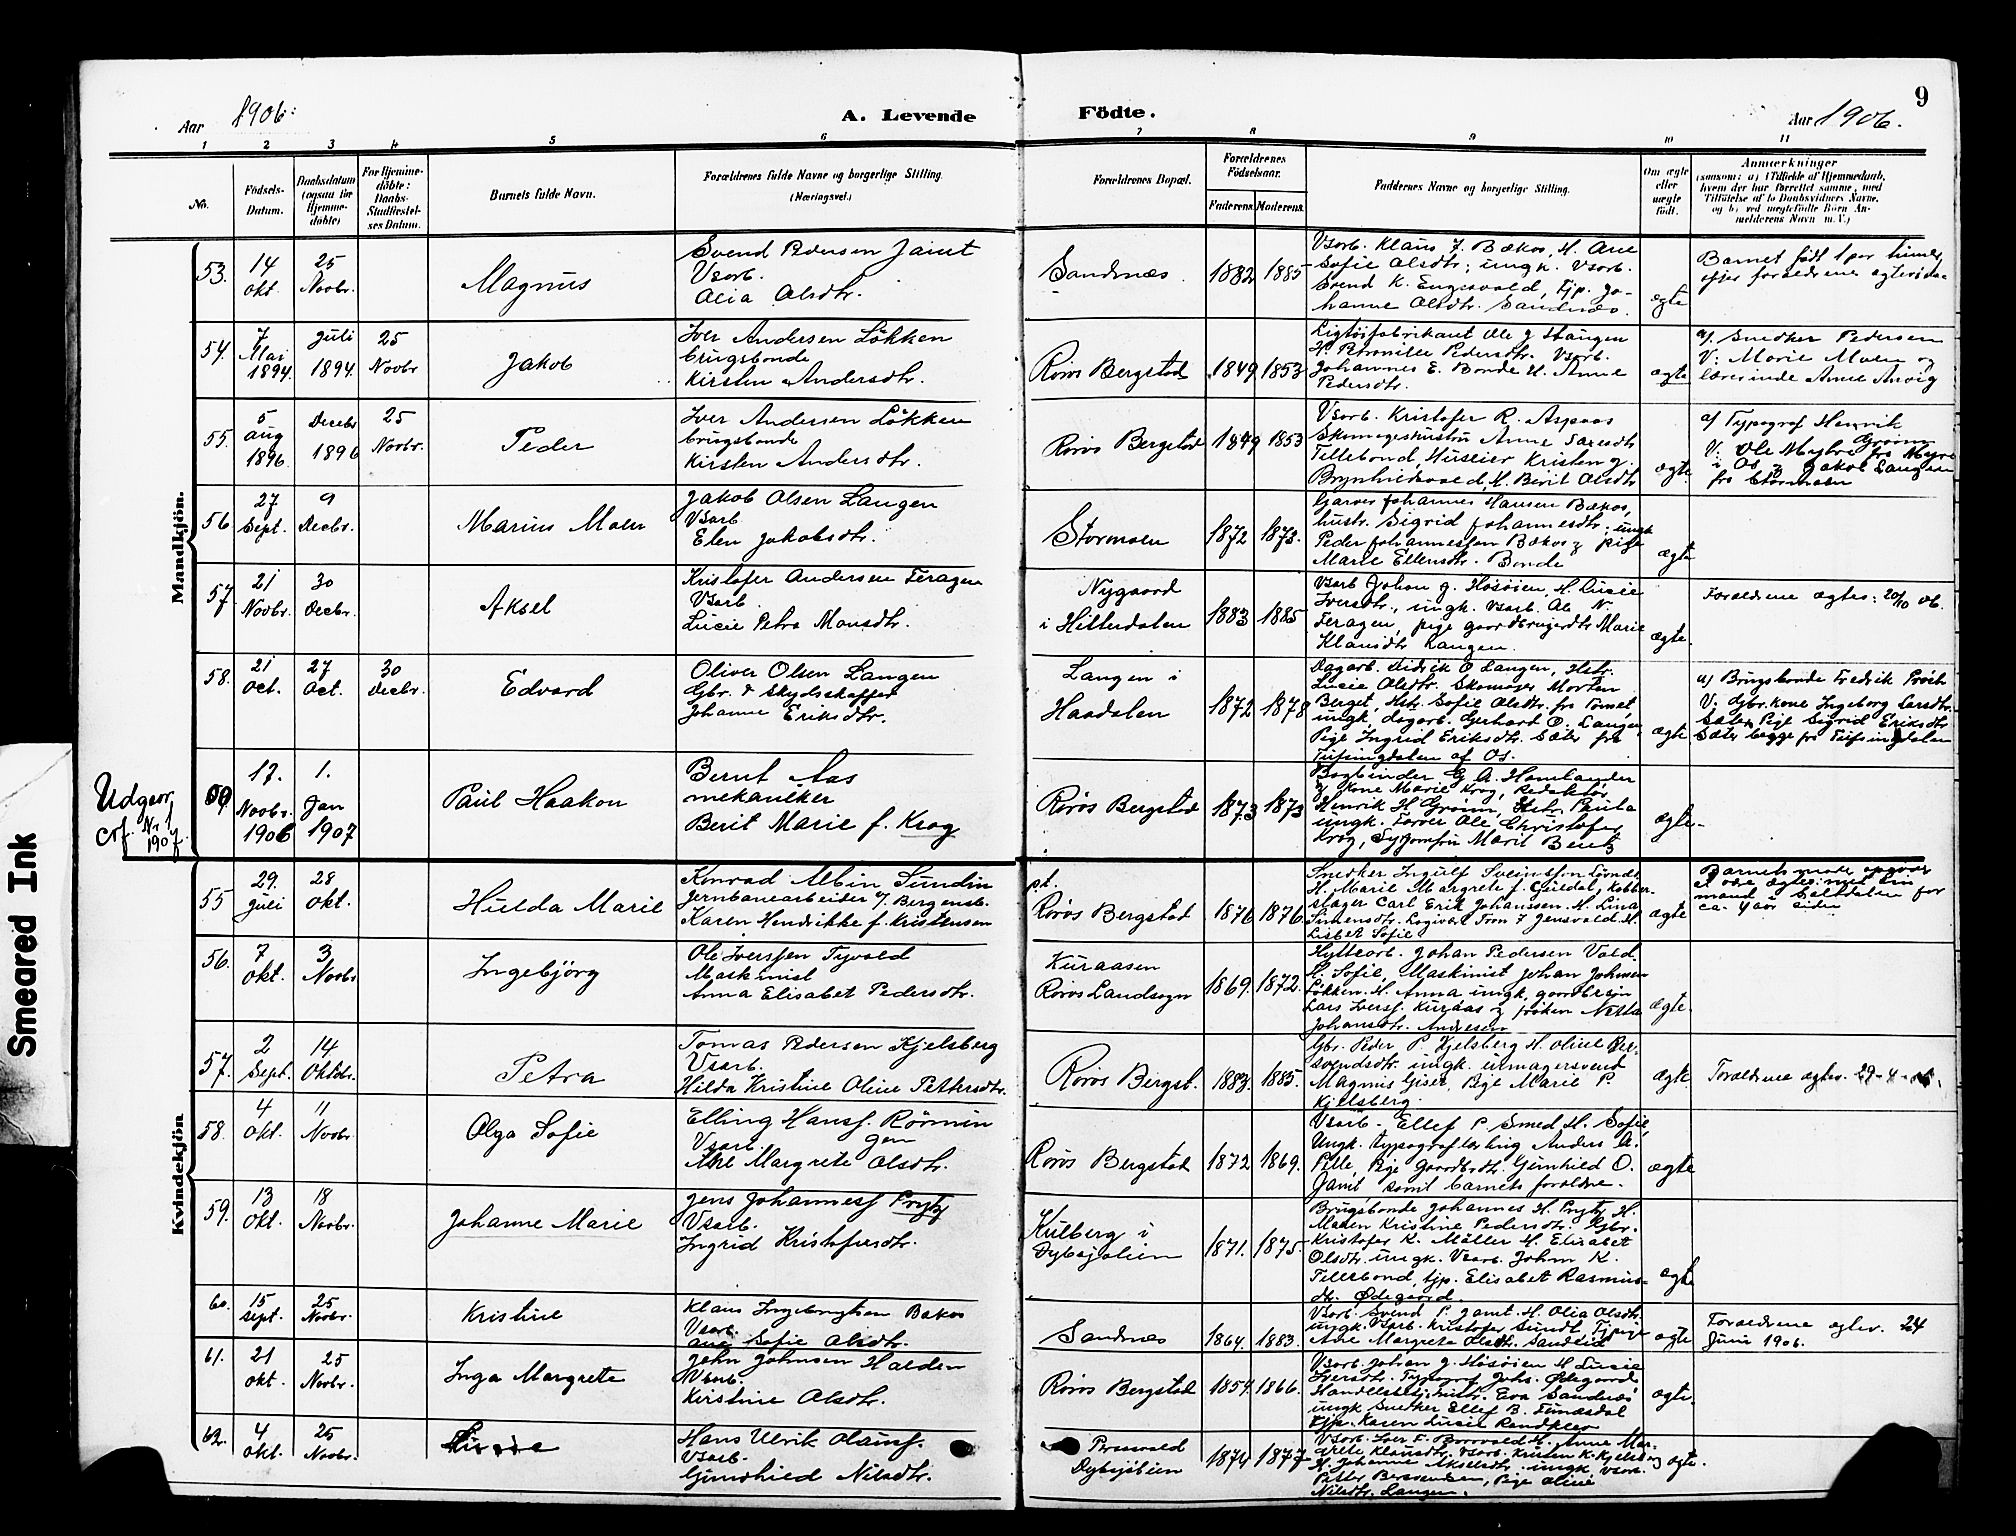 Aar 1906.
A. Levende
Födte.
Aar 1906.
9
1 2 3 4 5 6 7 8 9 10 11
No.
Födsels-Datum.
Daabsdatum (ogsaa for Hjemme-döbte)
For Hjemme-döbte: Daabs-Stadfæstel-ses Datum.
Barnets fulde Navn.
Forældrenes fulde Navne og borgerlige Stilling. (Næringsvei.)
Forældrenes Bopæl.
Forældrenes Födselsaar.
Faderens. Moderens.
Faddernes Navne og borgerlige Stilling.
Om ægte eller uægte födt.
Anmærkninger
(saasom: a) i Tilfælde af Hjemmedaab, hvem der har forrettet samme, med Tilföielse af to Daabsvidners Navne, og b) ved uægtefödte Börn An-melderens Navn m. V.)
Mandkjön.
53. 14 Okt. 25 Novbr. Magnus
Svend Pedersen Jamt
Vsarb.
Olia Olsdtr.
Sandnæs 1882 1885
Vsarb. Klaus J. Bækos, H. Ane
Sofie Olsdtr; ungk. Vsarb.
Svend K. Engesvold, tjp. Jo-
hanne Olsdtr. Sandnæs.
ægte
Barnet födt 1 par timer
efter forældrenes
54. 7 Mai 1894. Juli 1894. 25 Novbr Jakob
Iver Andersen Lökken
brugsbonde
Kirsten Andersdtr.
Röros Bergstad 1849 1853
Ole J Stangen
H. Petronille Pedersdtr. Vsarb.
Johannes E. Bonde H. Anne
Pedersdtr.
ægte
a/ Snedker Pedersen
V: Marie Moen og
lærerinde Anne Anvig
55. 5 aug 1896. Decbr 1896 25 Novbr. Peder
Iver Andersen Lökken
brugsbonde
Kirsten Andersdtr.
Röros Bergstad 1849 1853
Vsarb. Kristofer R. Aspaas
Anne
Tellebond, Huseier Kristen J.
Brynhildsvold H. Berit Olsdtr
ægte
a/ Typograf Henrik
Grönn
V: Ole Myhre fra Myre
i Os og Jakob Langen
fra Stormoen
56 27 Sept. 9 Decbr. Marius Moen
Jakob Olsen Langen
Vsarb
Elen Jakobsdtr.
Stormoen 1872 1873.
Garver Johannes Hansen Bækos,
hustr. Sigrid Johannesdtr. ungk
Peder Johannessen Bækos, pige
Marie Ellensdtr. Bonde
ægte
57 21 Novbr. 30 Decbr. Aksel
Kristofer Andersen Feragen
Vsarb.
Lucie Petra Monsdtr.
Nygaard
i Hitterdalen 1883 1885
Vsarb Johan J. Hösöien, H. Lucie
Iversdtr., ungk. Vsarb. Ab. N.
Feragen, pige gaardbrugerdtr Marie
Klausdtr Langen.
ægte
Forældrene ægtev. 20/10 06.
58. 21 Oct. 27 Oct. 30 Decbr. Edvard
Oliver Olsen Langen
Gbr. & Skydsskaffer
Johanne Eriksdtr.
Langen i
Haadalen 1872 1878
Dagarb. Didrik O Langen, Hstr.
Lucie Olsdtr. Skomager Morten
Berget, Hstr. Sofie Olsdtr. fra Tönset
ungk. dagarb. Gerhard O. Langen
Pige Ingrid Eriksdtr. Sæter fra
Tufsingdalen af Os.
ægte
a) Brugsbonde Fredrik
V. Gbr. kone Ingeborg Larsdtr.
Sæter, Pige Sigrid Eriksdtr
Sæter begge fra Tufsingdalen
Udgaar,
cfr. Nr 1
1907.
59 17. Novbr. 1906 1. Jan 1907 Paul Haakon
Bernt Aas
mekaniker
Berit Marie f. Krog
Röros Bergstad 1873 1873
Bogbinder G A. Homlander
& Kone Marie Krog, Redaktör
Henrik H Grönn, Hstr. Paula
ungk. Farver Ole Christofer
Krog, Syjomfru Marit Bentz
ægte.
Kvindekjön
55 29. Juli 28 Okt. Hulda Marie
Konrad Albin Sundin
Jernbanearbeider v/ Bergensb.
Karen Hendrikke f. Kristensen
pt.
Röros Bergstad 1876 1876
Snedker Ingulf Sveinssen
H. Marie Margrete f. Guldal, kobber-
slager Carl Erik Johanssen. H. Lina
Simensdtr. Logivært Tron J Jensvold. H.
Lisbet Sofie
ægte
Barnets moder opgiver
at være ægteviet med sin
mand
ca. 4 aar siden
56. 7 Okt. 3 Novbr Ingebjörg
Ole Iverssen Tyvold
Maskinist
Anna Elisabet Pedersdtr.
Kuraasen
Röros Landsogn 1869. 1872.
Hyttearb. Johan Pedersen Vold.
H. Sofie, Maskinist Johan Johnsen
Lökken. H. Anna ungk. gaardbrsön
Lars Iverss. Kuraas & fröken Netta
Johansdtr. Andresen
ægte.
57. 2 Sept. 14 Oktbr. Petra
Tomas Pedersen Kjelsberg
Vsarb.
Hilda Kristine Oline Pettersdtr.
Röros Bergst. 1883. 1885.
Gbr. Peder P. Kjelsberg H. Oline Ber-
svendsdtr. ungk. urmagersvend
Magnus Giser, Pige Marie P.
Kjelsberg.
ægte
Forældrene ægtev. 29-4-
58. 4 Okt. 11 Novbr Olga Sofie
Elling Hanss. Rönnin
gen
Vsarb.
Ane Margrete Olsdtr.
Röros Bergstad 1872 1869.
Vsarb. Ellef P. Smed H. Sofie,
Ungk. typograflærling Anders A.
Pelle, Pige Gaardbrdtr. Gunhild O.
Jamt, samt barnets forældre.
ægte
59. 13 Okt. 18 Novbr. Johanne Marie
Jens Johanness. Prytz
Vsarb.
Ingrid Kristofersdtr.
Kulberg i
1871. 1875.
Brugsbonde Johannes H. Prytz H.
Maren Kristine Pedersdtr. Gbr.
Kristofer K. Möller H. Elisabet
Olsdtr. ungk. Vsarb. John K.
Tellebond, tjp. Elisabet Rasmus-
dtr. Ödegaard.
ægte
60. 15 Sept. 25 Novbr. Kristine
Klaus Ingebrigtsen Bækos
Vsarb.
Ane Sofie Olsdtr.
Sandnæs 1864. 1883.
Vsarb. Svend P. Jamt. H. Olia Olsdtr.
ungk. Vsarb. Kristofer Sundt, Tjpige
Ane Margrete Olsdtr. Sandnæs
ægte
Forældrene ægtev. 24
Juni 1906.
61. 21 Okt. 25 Novbr. Inga Margrete
John Johnsen Harden
Vsarb.
Kirstine Olsdtr.
Röros Bergstad 1854. 1866.
Vsarb. Johan J. Hösöien H Lucie
Iversdtr. Typograf Johs. Ödegaard
Eva Sandnæs
ungk Snedker Ellef B. Funæsdal
Tjp. Karen Lucie
ægte.
62. 4 Okt. 25 Novbr.
Hans Ulrik Olauss.
Vsarb.
Gunhild Nilsdtr.
1874 1877
Vsarb. Iver Borgvold H. Anne Mar-
grete Klausdtr. Vsarb. Kristen K. Kjelsberg
H. Johanne Akselsdtr. ungk. Vsarb.
Petter Bersvendsen, Pige Oline
Nilsdtr. Langen.
ægte.
Smeared Ink